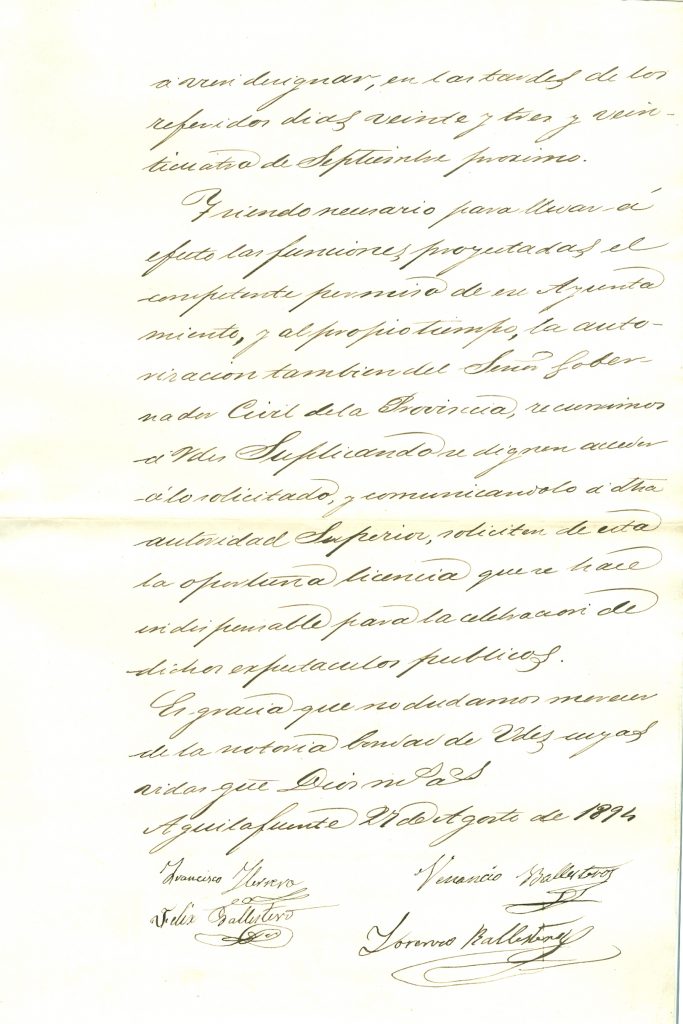 á bien designar, en las tardes de los
referidos dias veinte y tres y vein-
ticuatro de Septiembre proximo.
Y siendo necesario para llevar á
efecto las funciones proyectadas el
competente permiso de ese Ayunta
miento, y al propio tiempo, la auto-
rizacion tambien del Señor Gober-
nador Civil de la Provincia, recurrimos
á Vdes Suplicando se dignen acceder
á lo solicitado, y comunicandolo á dha
autoridad Superior, soliciten de esta
la oportuna licencia que se hace
indispensable para la celebracion de
dichos expectaculos publicos.
Es gracia que no dudamos merecer
de la notoria bondad de Vdes cuyas
vidas gue Dios ms as
Aguilafuente 27 de Agosto de 1894
Francisco Herrero
Venancio Ballesteros
Felix Ballestero
Lorenzo Ballesteros